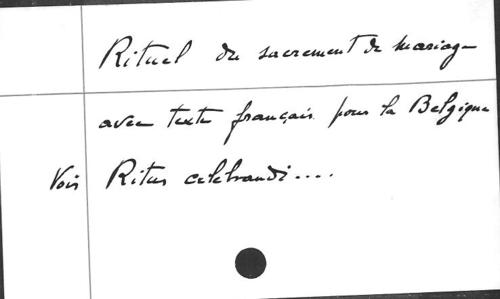 Rituel du sacrement de mariage
avec texte français pour la Belgique
Voir Ritus celebrandi....